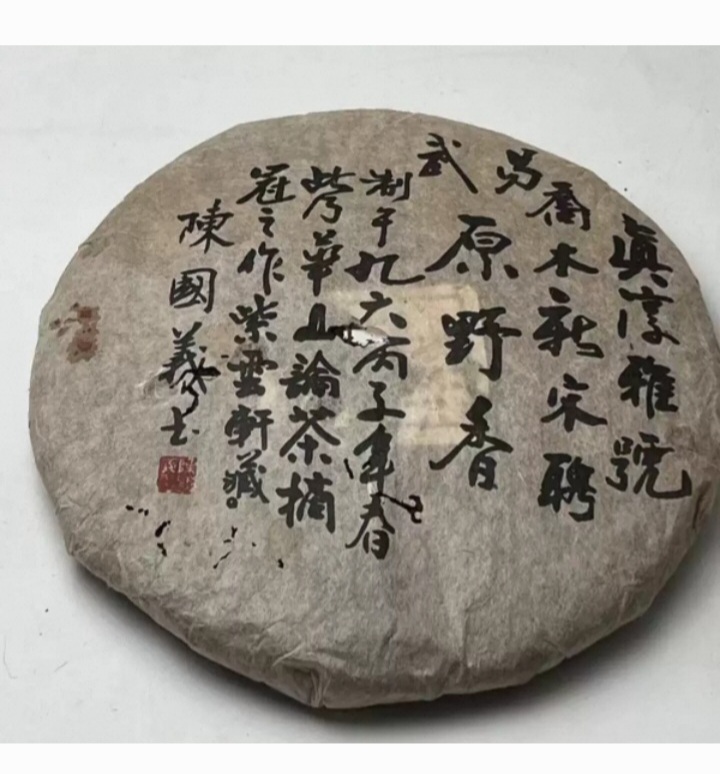 眞淳雅號
喬木新宋聘
易武
原野香
制于九六丙子年春
譽華山論茶摘
冠之作紫雲軒藏。
陳國義书